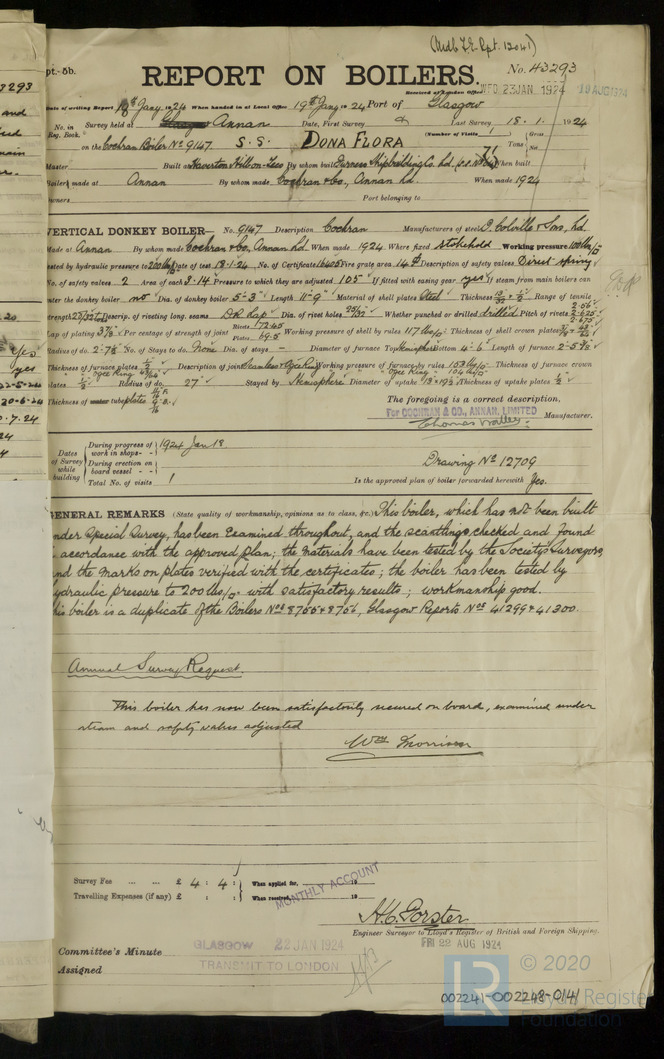 (Mdb F.E. Rpt. 12041)
pt. 5b.
REPORT ON BOILERS.
No. 43293
Received at London Office
WED 23 JAN 1924
19 AUG 1924
Date of writing Report 18th Jany 1924 When handed in at Local Office 19th Jany 1924 Port of Glasgow
No. in Reg. Book. Survey held at Annan Date, First Survey Last Survey 18.1.1924
(Number of Visits 1) Gross Tons Net
on the Cochran Boiler No 9147 S.S. DONA FLORA
Master Built at Haverton Hill-on-Tees By whom built Furness Shipbuilding Co. Ld. When built
Boilers made at Annan By whom made Cochran & Co., Annan Ld. When made 1924
Owners Port belonging to
VERTICAL DONKEY BOILER— No. 9147 Description Cochran Manufacturers of steel D. Colville & Sons, Ld.
Made at Annan By whom made Cochran & Co, Annan Ld. When made 1924 Where fixed stokehold Working pressure 100 lbs/□"
tested by hydraulic pressure to 200 lbs Date of test 18-1-24 No. of Certificate 16405 Fire grate area 14 □ Description of safety valves Direct spring
No. of safety valves 2 Area of each 3.14 Pressure to which they are adjusted 105 If fitted with easing gear yes If steam from main boilers can
enter the donkey boiler no Dia. of donkey boiler 5'-3" Length 11'-9" Material of shell plates Steel Thickness Range of tensile
strength Descrip. of riveting long. seams DR Lap Dia. of rivet holes Whether punched or drilled drilled Pitch of rivets
Lap of plating Per centage of strength of joint Rivets 72.45 Plates 69.5 Working pressure of shell by rules 117 lbs Thickness of shell crown plates
Radius of do. No. of Stays to do. None Dia. of stays - Diameter of furnace Top Hemisphere Bottom 4'-6" Length of furnace
Thickness of furnace plates Description of joint Seamless & Ogee Ring Working pressure of furnace by rules Thickness of furnace crown
plates Radius of do. 27" Stayed by Hemisphere Diameter of uptake Thickness of uptake plates
Thickness of water tube plates
The foregoing is a correct description.
For COCHRAN & CO., ANNAN, LIMITED Manufacturer.
Dates of Survey while building
During progress of work in shops - - 1924 Jan 18
During erection on board vessel - -
Total No. of visits 1
Drawing No 12709
Is the approved plan of boiler forwarded herewith Yes.
GENERAL REMARKS (State quality of workmanship, opinions as to class, &c.) This boiler, which has not been built
under Special Survey, has been Examined throughout, and the scantlings checked and found
in accordance with the approved plan; the materials have been tested by the Society's Surveyors,
and the marks on plates verified with the certificates; the boiler has been tested by
hydraulic pressure to 200 lbs/□" with satisfactory results; workmanship good.
This boiler is a duplicate of the Boilers Nos 8755 & 8756, Glasgow Reports Nos 41299 & 41300.
Annual Survey Request
This boiler has now been satisfactorily secured on board, examined under
steam and safety valves adjusted
Wm Morrison
Survey Fee ... ... £ 4 : 4 : When applied for, 19
Travelling Expenses (if any) £ : : When received, 19
MONTHLY ACCOUNT
A.C. Forster
Engineer Surveyor to Lloyd's Register of British and Foreign Shipping.
Committee's Minute GLASGOW 22 JAN 1924
FRI 22 AUG 1924
Assigned TRANSMIT TO LONDON
LR © 2020
Lloyd's Register
Foundation
002241-002248-0141